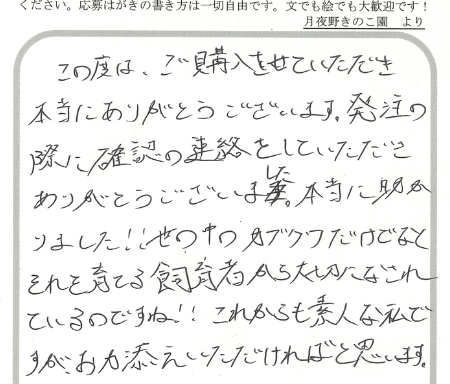 ください。応募はがきの書き方は一切自由です。文でも絵でも大歓迎です!
月夜野きのこ園 より
この度は、ご購入をせていただき
本当にありがとうございます。発注の
際に確認の連絡をしていただき
ありがとうございました。本当に助か
りました!!世の中のカブクワだけでなく
それを育てる飼育者から大切になされ
ているのですね!!これからも素人な私で
すが、お力添えいただければと思います。